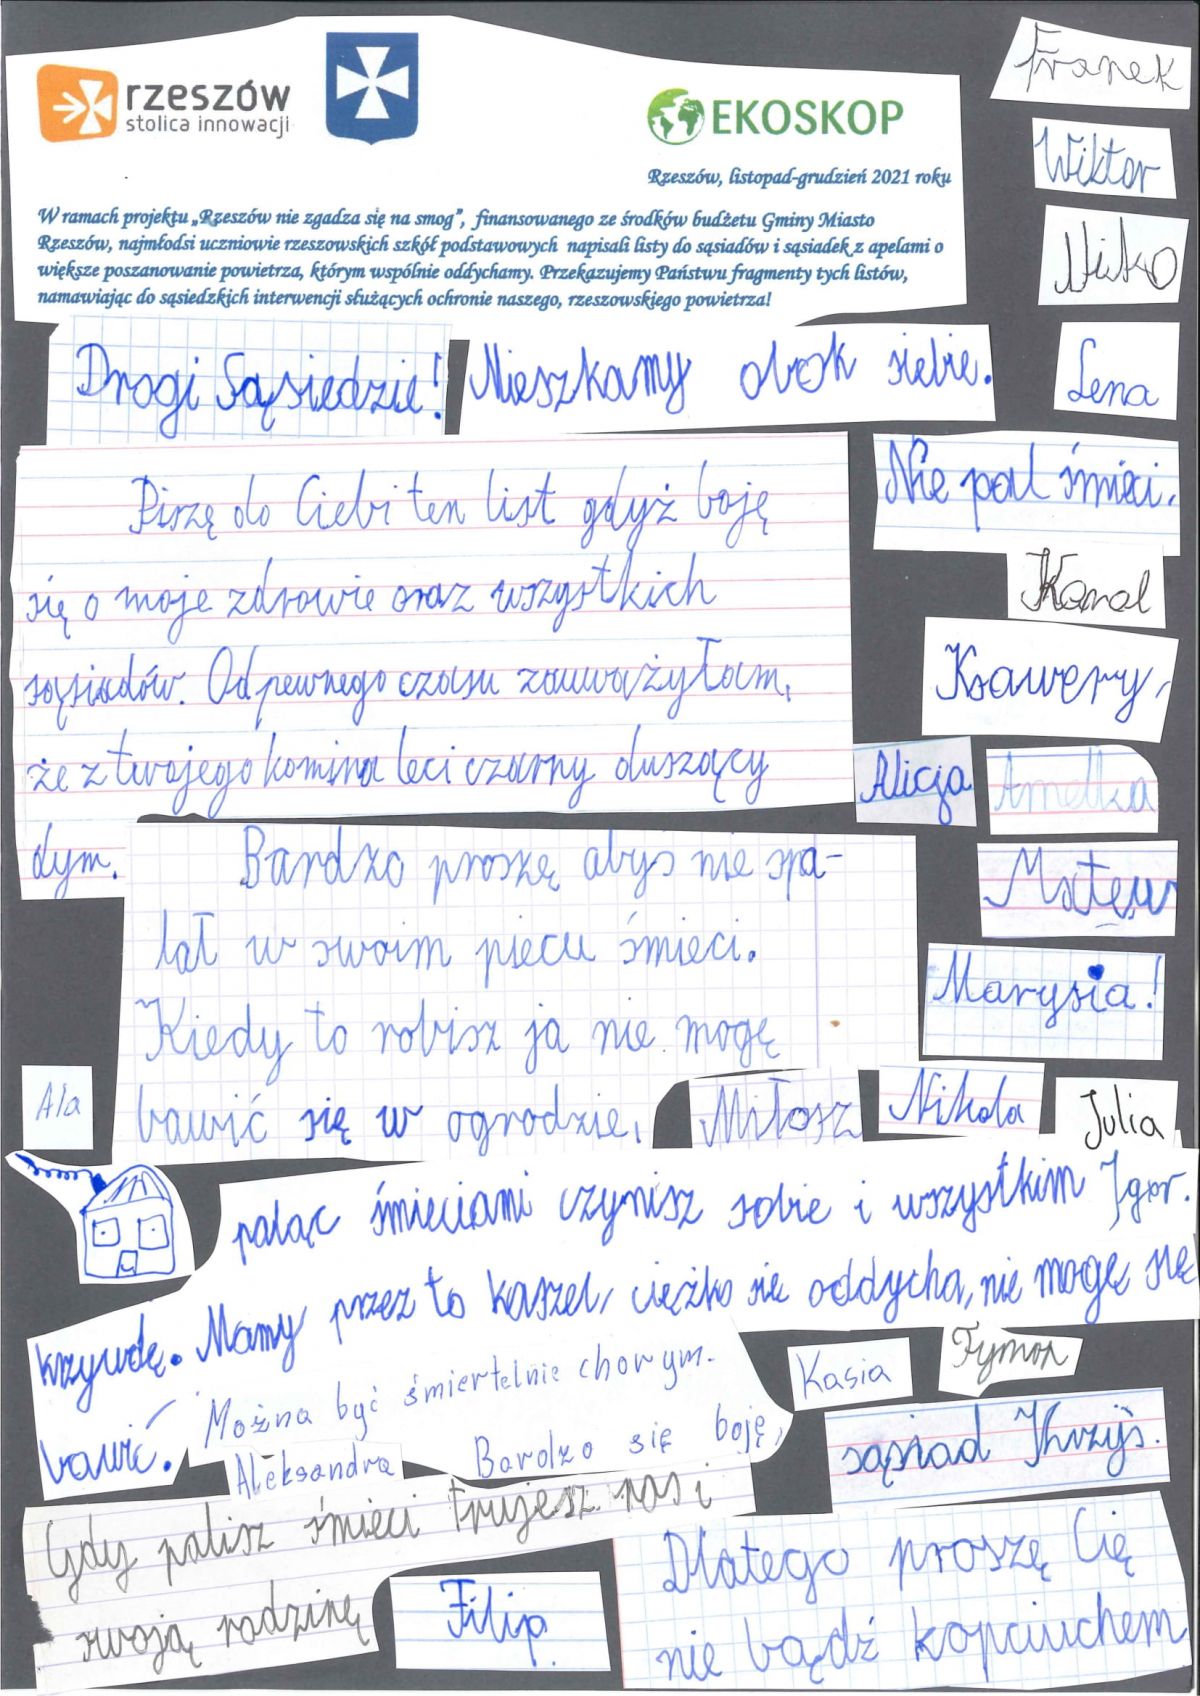 rzeszów
stolica innowacji
EKOSKOP
Rzeszów, listopad-grudzień 2021 roku
W ramach projektu „Rzeszów nie zgadza się na smog”, finansowanego ze środków budżetu Gminy Miasto
Rzeszów, najmłodsi uczniowie rzeszowskich szkół podstawowych napisali listy do sąsiadów i sąsiadek z apelami o
większe poszanowanie powietrza, którym wspólnie oddychamy. Przekazujemy Państwu fragmenty tych listów,
namawiając do sąsiedzkich interwencji służących ochronie naszego, rzeszowskiego powietrza!
Franek
Wiktor
Niko
Lena
Drogi Sąsiedzie!
Mieszkamy obok siebie.
Nie pal śmieci.
Piszę do Ciebi ten list gdyż boję
się o moje zdrowie oraz wszystkich
sąsiadów. Od pewnego czasu zauważyłam,
że z twojego komina leci czarny duszący
dym.
Karol
Ksawery,
Alicja
Amelka
Mateusz
Marysia!
Bardzo proszę abyś nie spa-
lał w swoim piecu śmieci.
Kiedy to robisz ja nie mogę
bawić się w ogrodzie.
Ala
Miłosz
Nikola
Julia
paląc śmieciami czynisz sobie i wszystkim
Igor.
krzywdę. Mamy przez to kaszel, ciężko się oddycha, nie mogę się
bawić.
Można być śmiertelnie chorym.
Kasia
Tymon
Aleksandra
Bardzo się boję,
sąsiad Khzyś.
Gdy palisz śmieci trujesz nas i
swoją rodzinę
Filip.
Dlatego proszę Cię
nie bądź kopciuchem